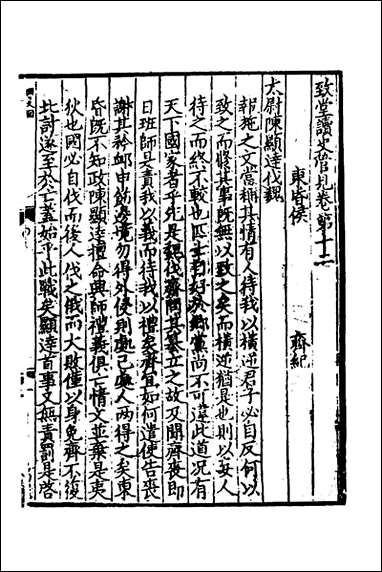 致堂讀史管見卷第十二
東昏侯　齊紀
太尉陳顯達伐魏
報施之文當稱其情有人待我以橫逆君子必自反何以
致之而修其事既無以致之矣而橫逆猶是也則以妄人
待之而終不較也匹士于鄉黨尚不可違此道況有
天下國家者乎先是魏伐齊問其簒立之故又聞齊喪即
日班師是責我以義而待我以禮矣齊宜如何遣使告喪
謝其矜卹申飭邊境勿得外侵則處己處人兩得之矣東
昏既不知政陳顯達擅命興師禮義俱亡情文並棄是夷
狄也國必自伐而後人伐之俄而大敗僅以身免齊不復
此討遂至於亡蓋始乎此職矣顯達首事又無責罰是啓